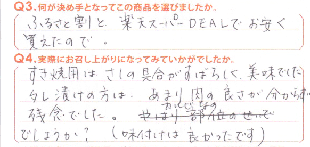 Q3.何が決め手となってこの商品を選びましたか.
ふるさと割と、楽天スーパーDEALでお安く
買えたので。
Q4.実際にお召し上がりになってみていかがでしたか.
すき焼用は、さしの具合がすばらしく、美味でした
タレ漬けの方は、あまり肉の良さが分からず
残念でした。カルビなの
でしょうか？（味付けは良かったです）